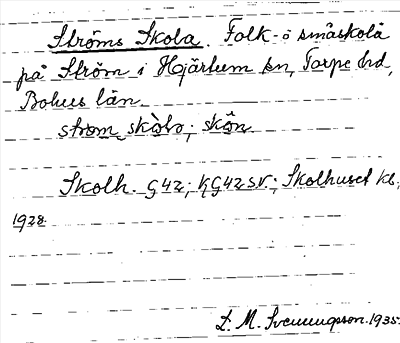 Ströms Skola. Folk- o småskola
på Ström i Hjärtum sn, Torpe hd,
Bohus län.
strøm skò̀lo; skôn.
Skolh. G42; KG42SV.; Skolhuset kb,
1928.
D. M. Svenungsson. 1935.